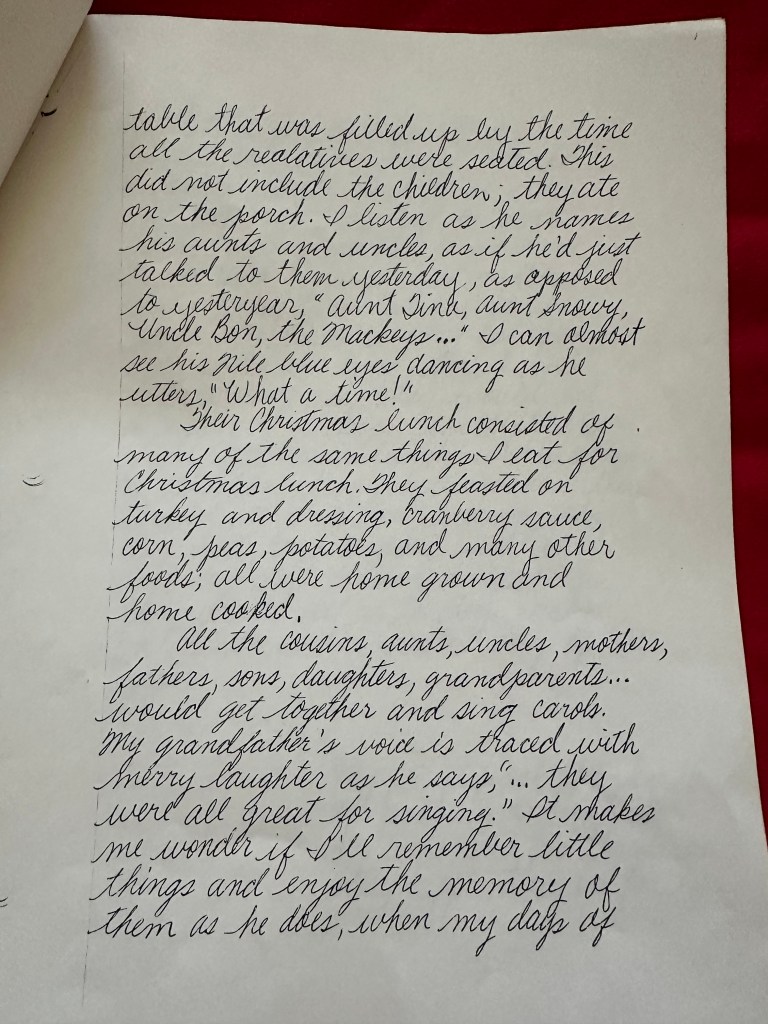 table that was filled up by the time
all the realatives were seated. This
did not include the children; they ate
on the porch. I listen as he names
his aunts and uncles, as if he'd just
talked to them yesterday, as opposed
to yesteryear, "Aunt Tina, Aunt Snowy,
Uncle Bon, the Mackeys..." I can almost
see his Nile blue eyes dancing as he
utters, "What a time!"
Their Christmas lunch consisted of
many of the same things I eat for
Christmas lunch. They feasted on
turkey and dressing, cranberry sauce,
corn, peas, potatoes, and many other
foods; all were home grown and
home cooked.
All the cousins, aunts, uncles, mothers,
fathers, sons, daughters, grandparents...
would get together and sing carols.
My grandfather's voice is traced with
merry laughter as he says, "... they
were all great for singing." It makes
me wonder if I'll remember little
things and enjoy the memory of
them as he does, when my days of